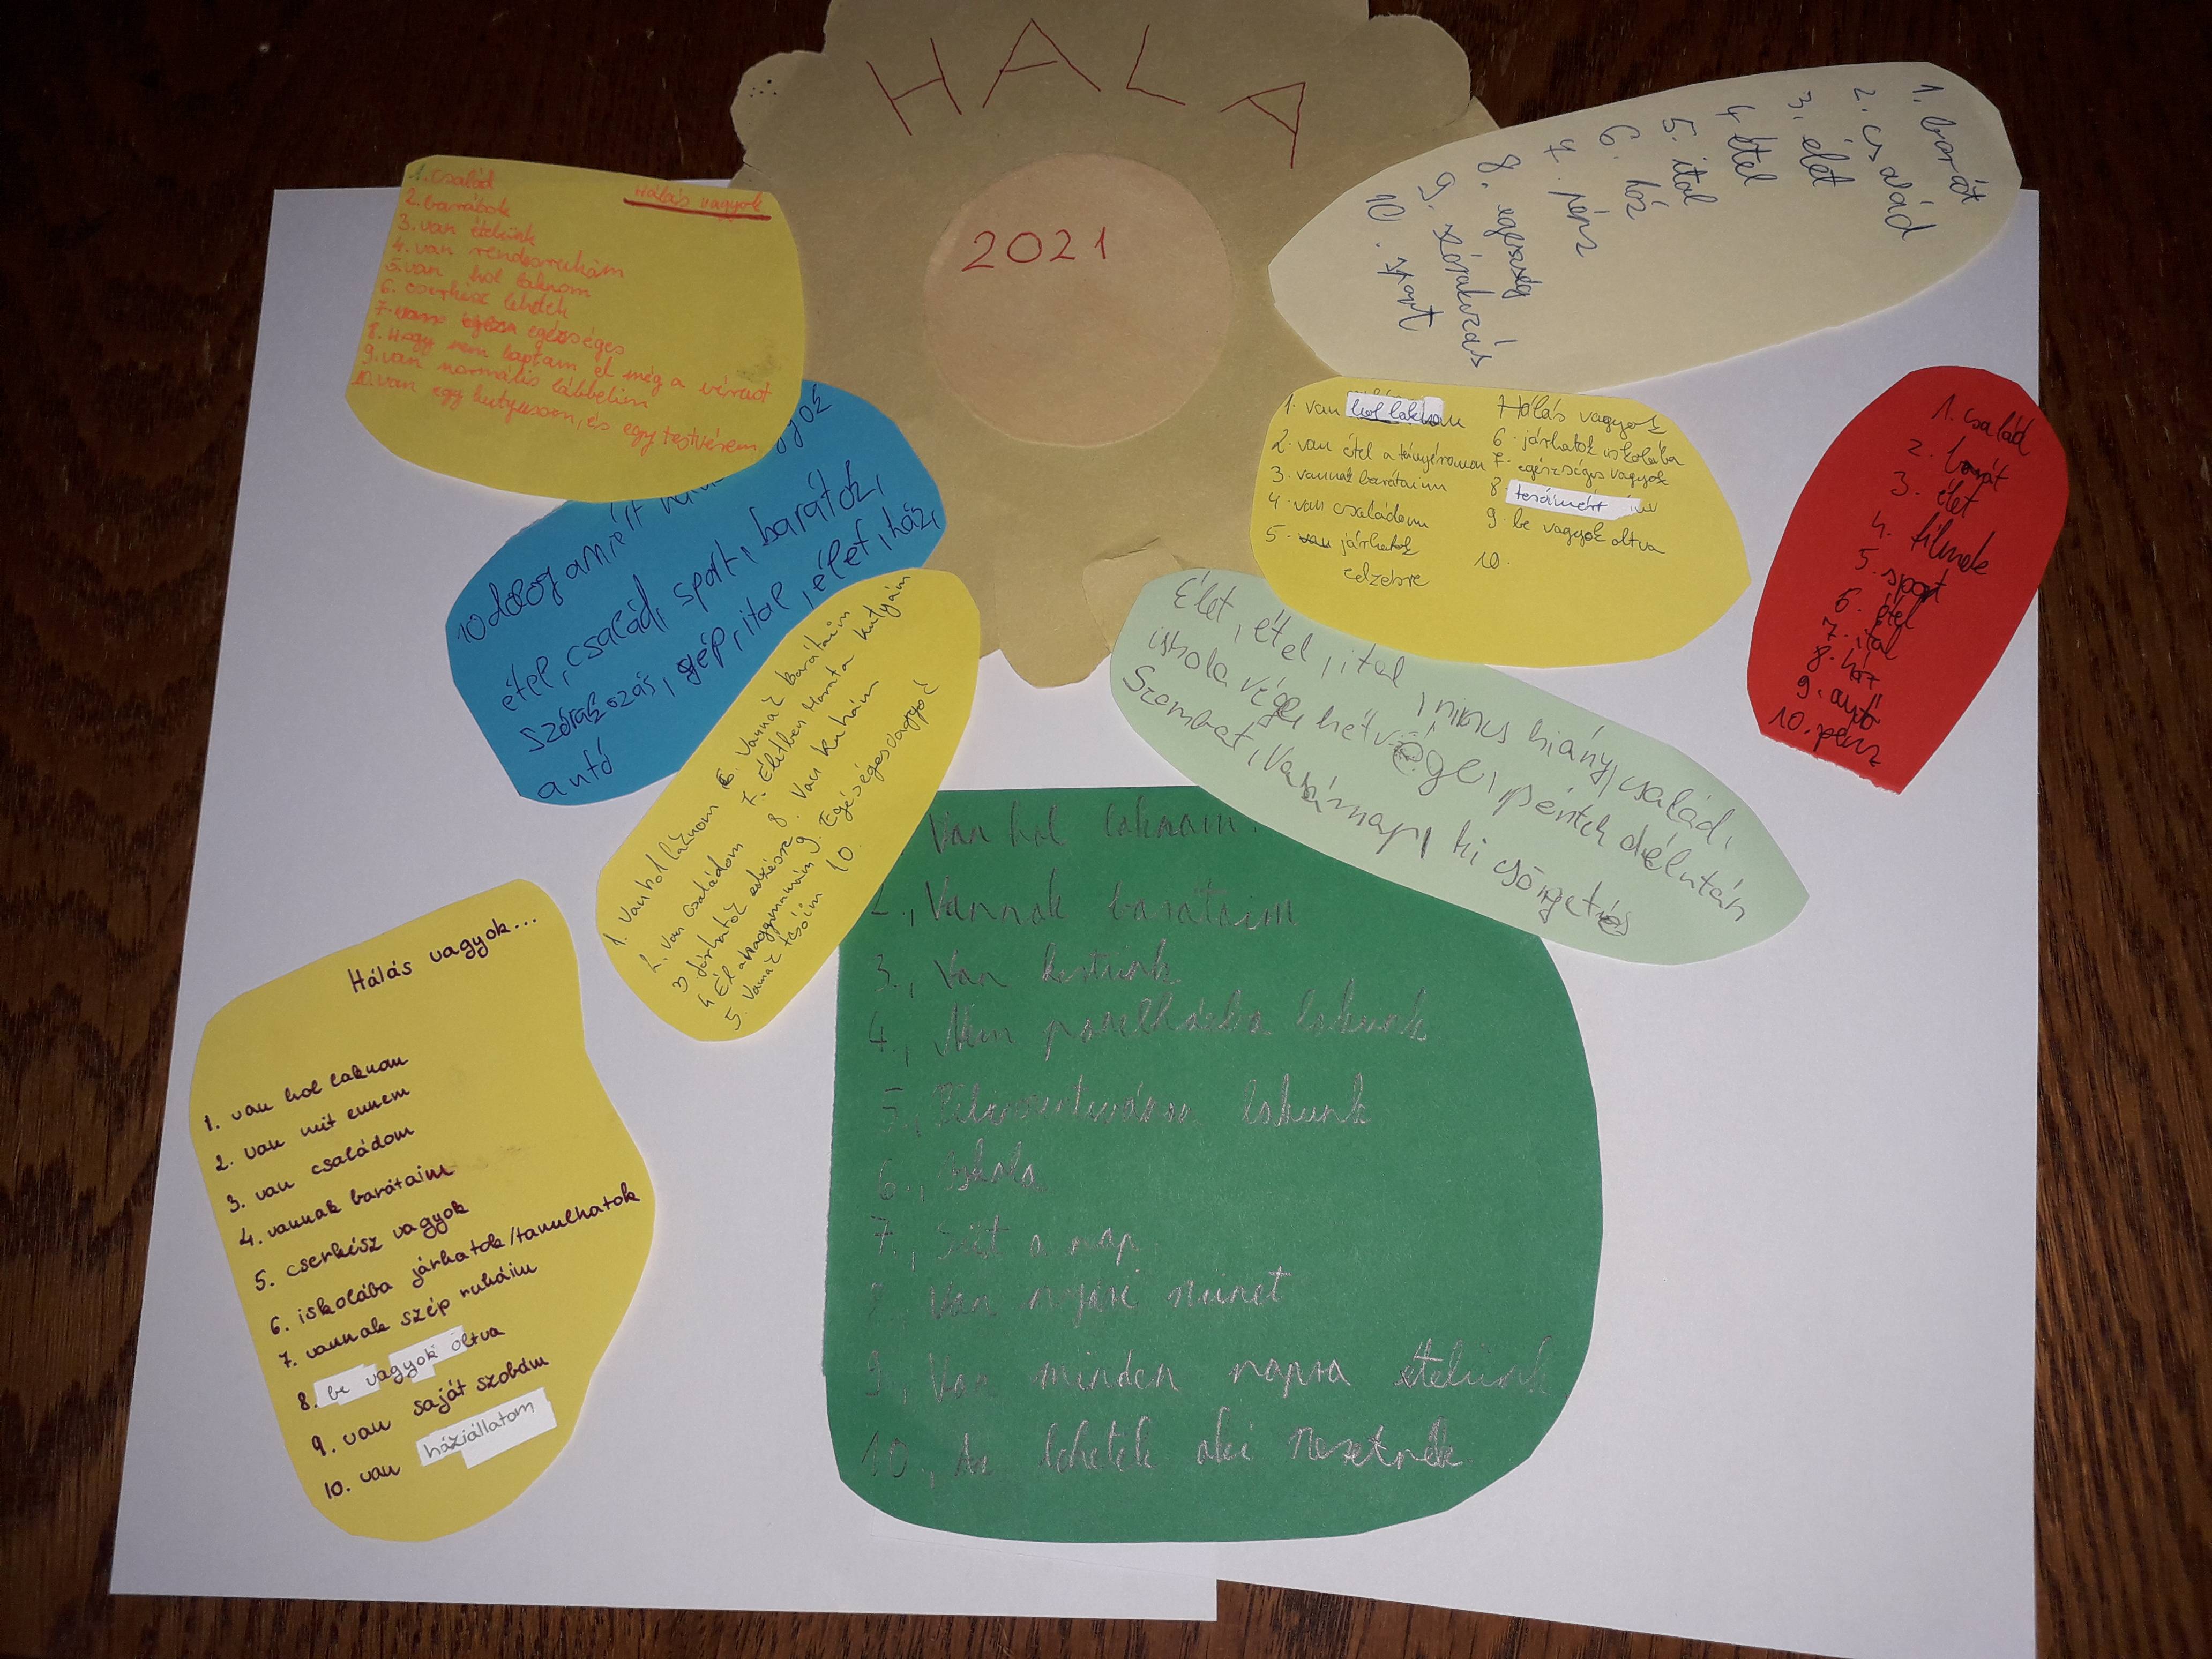 HALA
2021
Hálás vagyok
1. család
2. barátok
3. van ételünk
4. van rendesruhám
5. van hol laknom
6. cserkész lehetek
7. egészséges
8. Hogy nem kaptam el még a vírust
9. van normális lábbelim
10. van egy kutyusom, és egy testvérem
1. barát
2. család
3. élet
4. étel
5. ital
6. ház
7. pénz
8. egészség
9. szórakozás
10. sport
10 dolog amiért
étel, család, sport, barátok,
szórakozás, gép, ital, élet, ház,
autó
Hálás vagyok
1. van hol laknom
2. van étel a tányéromon
3. vannak barátaim
4. van családom
5. van járhatok
edzésre
6. járhatok iskolába
7. egészséges vagyok
8. tesóimért
9. be vagyok oltva
10.
1. család
2. barát
3. élet
4. filmek
5. sport
6. étel
7. ital
8. ház
9. autó
10. pénz
1. Van hol láknom
2. Van családom
3. Járhatok edzésre
4. Él a nagymamám
5. Vanak tesóim
6. Vannak barátaim
7. Életben Marata kutyám
8. Van Ruhám
9. Egéséges vagyok
10.
Élet, étel, ital, nincs hiány, család,
iskola vége, hétvége, péntek délután
Szombat, Vasárnap, ki csöngetés
Van hol laknom.
2., Vannak barataim
3., Van kertünk
4., Nem panelházba lakunk
5., lakunk
6., Iskola
7., Süt a nap
8., Van nyári szünet
9., Van minden napra ételünk
10., Az lehetek aki
Hálás vagyok...
1. van hol laknom
2. van mit ennem
3. van családom
4. vannak barátaim
5. cserkész vagyok
6. iskolába járhatok/tanulhatok
7. vannak szép ruháim
8. be vagyok oltva
9. van saját szobám
10. van háziállatom